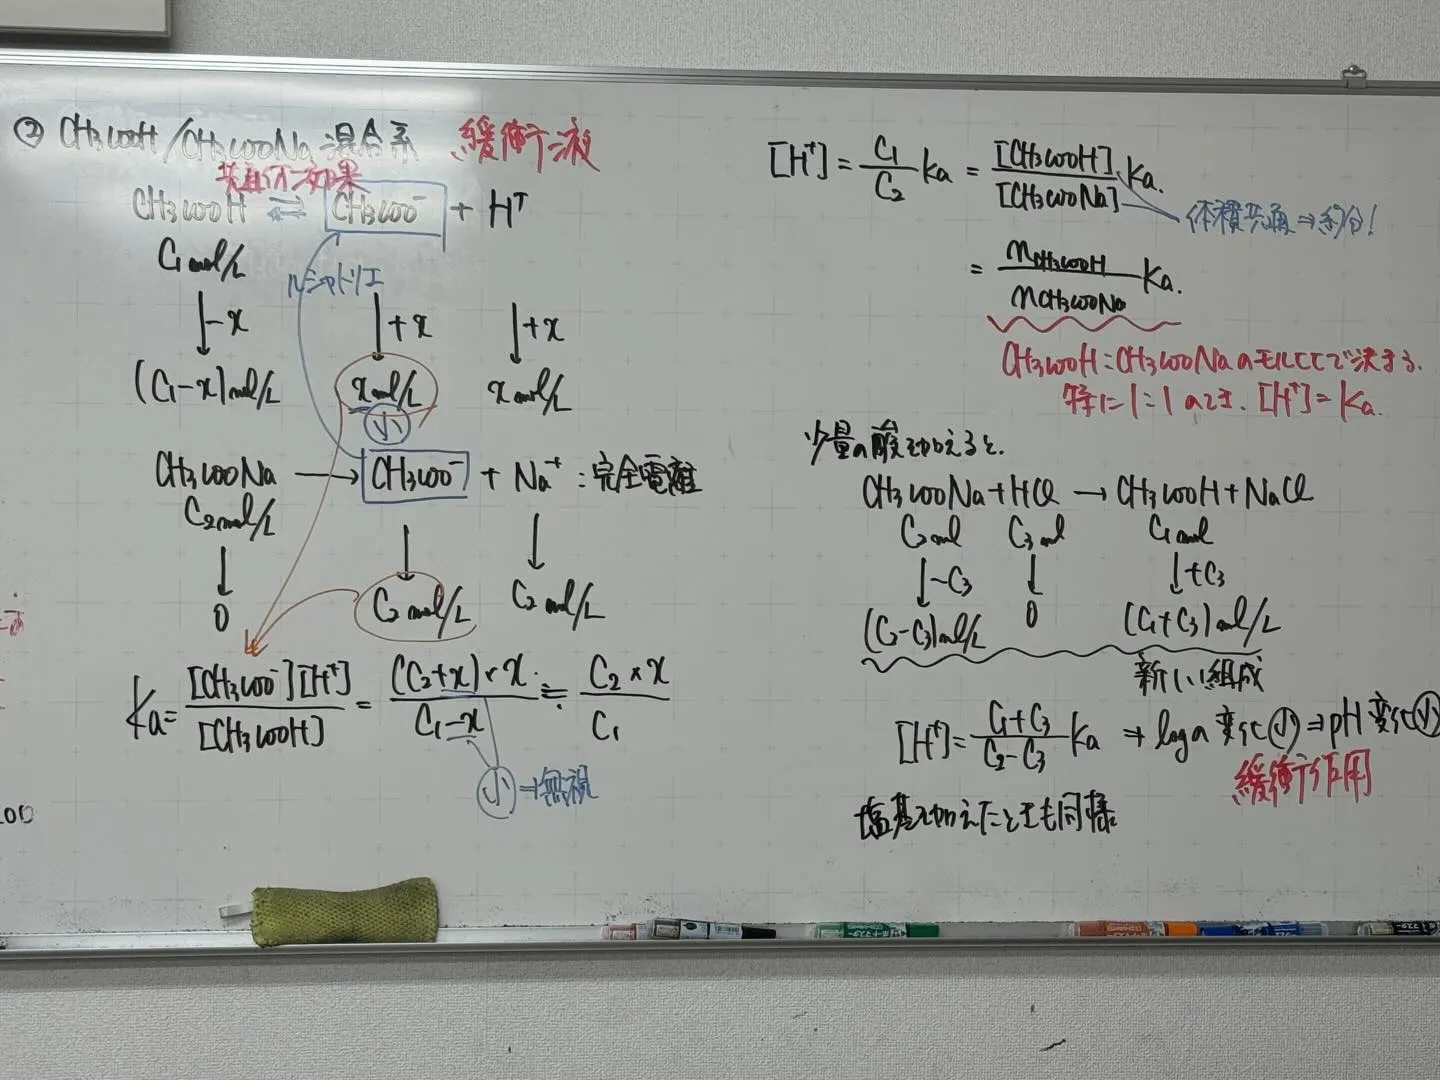 ② CH3COOH/CH3COONa混合系 緩衝液
共通イオン効果
CH3COOH ⇄ CH3COO⁻ + H⁺
C₁mol/L
ルシャトリエ
-x +x +x
(C₁-x)mol/L xmol/L xmol/L
小
CH3COONa → CH3COO⁻ + Na⁺:完全電離
C₂mol/L
↓ ↓ ↓
0 C₂mol/L C₂mol/L
Ka=[CH3COO⁻][H⁺]/[CH3COOH] = (C₂+x)×x/(C₁-x) ≒ C₂×x/C₁
小⇒無視
[H⁺]=C₁/C₂ Ka = [CH3COOH]/[CH3COONa] Ka.
体積共通⇒約分!
= nCH3COOH/nCH3COONa Ka.
CH3COOH:CH3COONaのモル比で決まる.
特に1:1のとき、[H⁺]=Ka.
少量の酸を加えると、
CH3COONa+HCl → CH3COOH+NaCl
C₂mol C₃mol C₁mol
↓-C₃ ↓ ↓+C₃
(C₂-C₃)mol/L 0 (C₁+C₃)mol/L
新しい組成
[H⁺]=C₁+C₃/C₂-C₃ Ka ⇒ logの変化小⇒pH変化小
緩衝作用
塩基を加えたときも同様